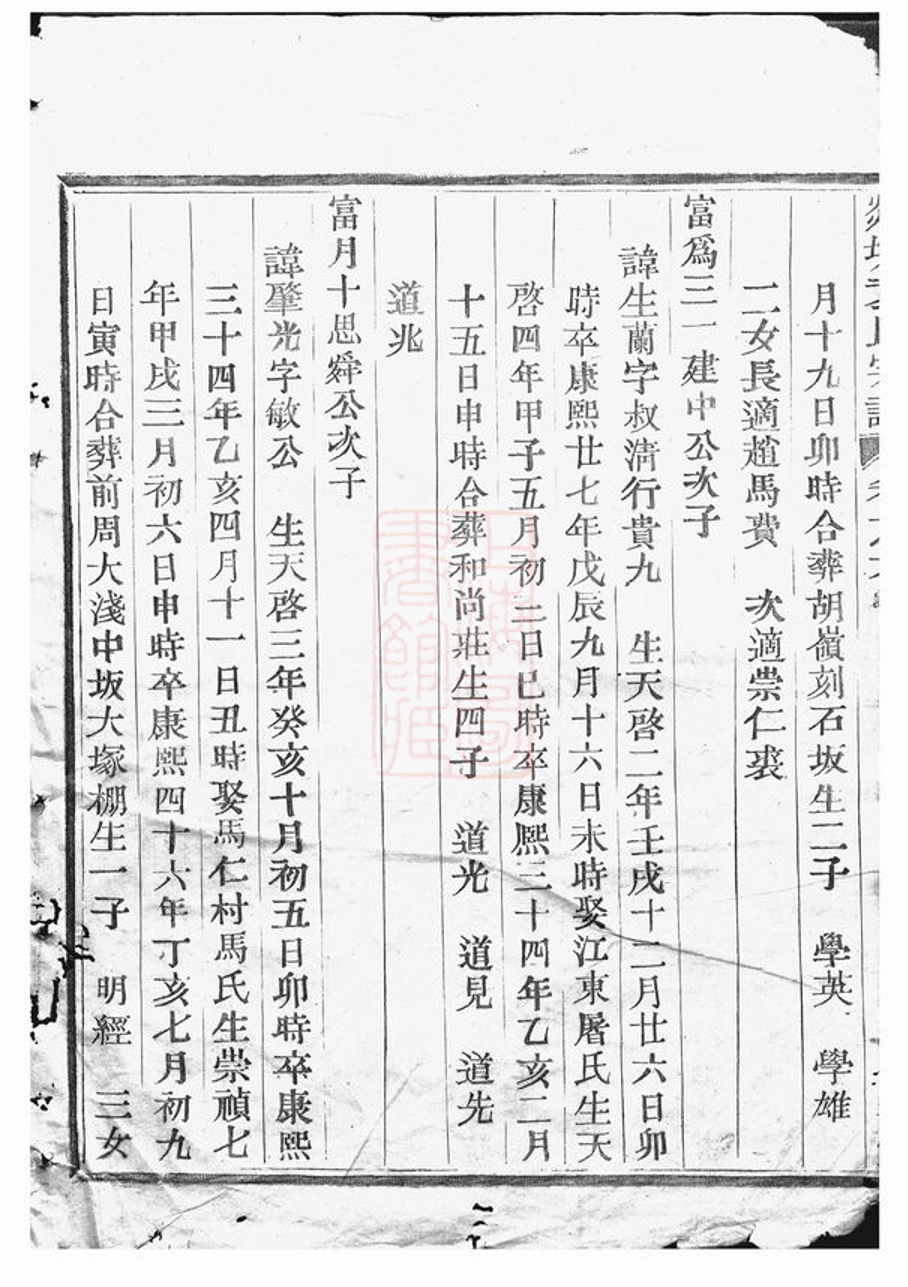 月十九日卯時合葬胡嶺刻石坂生二子　學英　學雄
二女長適趙馬費　次適崇仁裘
富爲三一建中公次子
諱生蘭字叔淸行貴九　生天啓二年壬戌十二月廿六日卯
時卒康熙廿七年戊辰九月十六日未時娶江東屠氏生天
啓四年甲子五月初三日巳時卒康熙三十四年乙亥二月
十五日申時合葬和尚莊生四子　道光　道見　道先
道兆
富月十思舜公次子
諱肇光字敏公　生天啓三年癸亥十月初五日卯時卒康熙
三十四年乙亥四月十一日丑時娶馬仁村馬氏生崇禎七
年甲戌三月初六日申時卒康熙四十六年丁亥七月初九
日寅時合葬前周大淺中坂大塚棚生一子　明經　三女